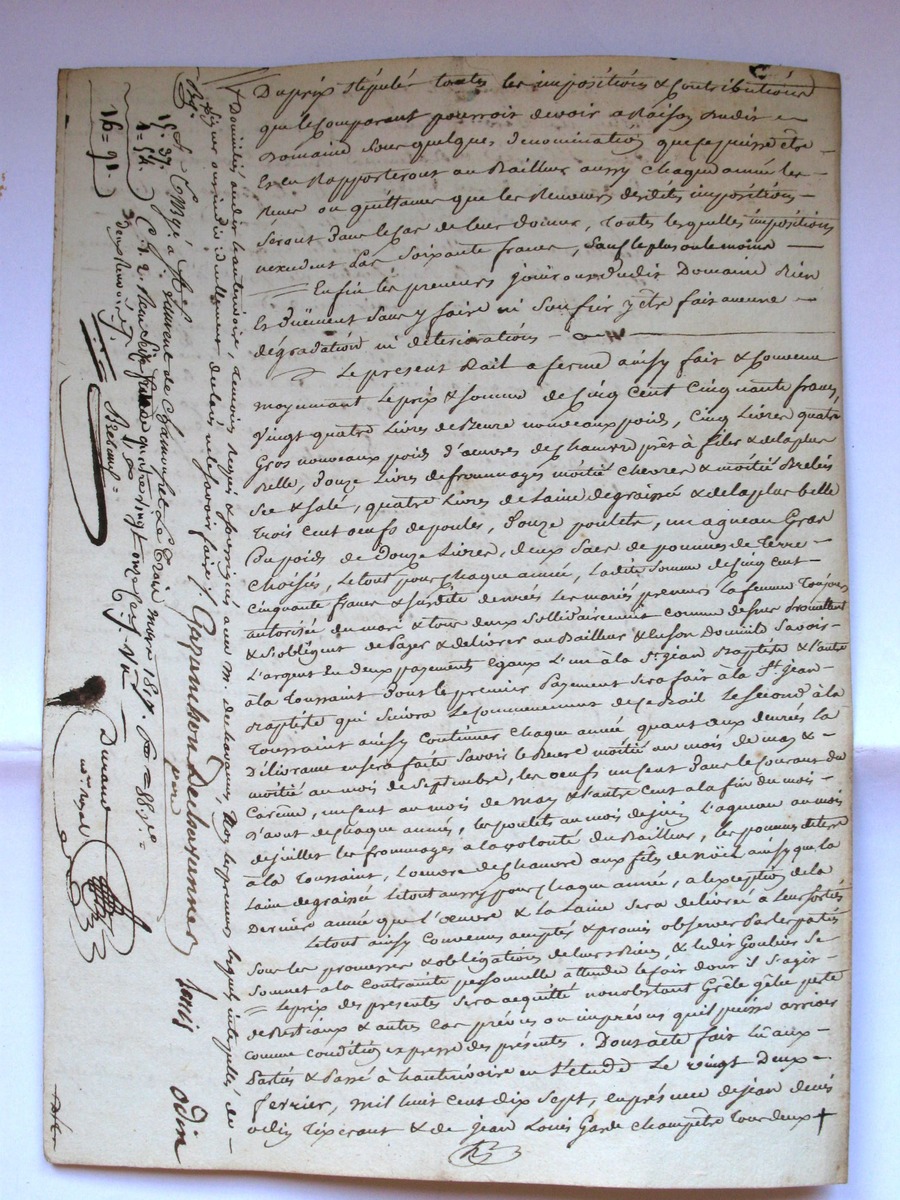 Du prix stipulé toutes les impositions & Contributions
que le Comparant pourroit devoir a Raison dudit
Domaine sous quelques denomination que ce puisse être
Et en Rapporteront au Bailleur aussy chaque année les
Recus ou quittances que les Receveurs desdits impositions
seront dans le Cas de leur donner, toutes lesquelles impositions
nexcedent pas soixante francs, sauf le plus ou le moins
Enfin les preneurs jouiront dudit Domaine Bien
Et Duëment sans y faire ni soufrir y être fait aucune
dégradation ni déteriorations
Le present Bail a ferme ainsy fait & Convenu
moyennant le prix & somme de Cinq Cent Cinquante francs,
Vingt quatre Livres de Beure nouveaux poids, Cinq Livres quatre
Gros nouveaux poids d'oeuvres de Chanvre prêt à filer & de la plus
Belle, Douze Livres de frommages moitié chevres & moitié Brebis
Sec & salé, quatre Livres de Laine dégraissée & de la plus belle
Trois cent oeufs de poules, Douze poulets, un agneau Gras
Du poids de Douze Livres, deux Sacs de pommes de Terre
Choisies, Le tout pour chaque année, Ladite somme de Cinq Cent
Cinquante francs & susdite denrées les mariés preneurs la femme Toujours
autorisée du mari & tous deux Sollidairement comme dessus promettent
& s'obligent de Payer & délivrer au Bailleur & en son Domicile Savoir
L'argent En deux payements Egaux L'un à la St. jean Baptiste & l'autre
à la Toussaint dont le premier Payement sera fait à la St. jean
Baptiste qui suivra Le Commencement de ce Bail Le second à la
Toussaint ainsy Continuer chaque année quant aux denrées La
Délivrance en sera faite Savoir le Beure moitié au mois de may &
moitié au mois de septembre, les oeufs un Cent Dans le Courant du
Carême, un Cent au mois de May & l'autre Cent a la fin du mois
D'aout de chaque années, les poulets au mois de juin L'agneau au mois
de juillet les frommages a la volonté du Bailleur, les pommes de terre
à la Toussaint, L'oeuvre de Chanvre aux fêtes de Noël ainsy que la
Laine dégraissée Le tout aussy pour chaque année, a l'exception de la
Derniere année que L'oeuvre & la Laine sera délivrée à Leur sortie
Le tout ainsy Convenus acceptés & promis observer Par les parties
Sous les promesses & obligations de leurs Biens, & ledit Goulier se
Soumet a la Contrainte personnelle attendu le fait dont il s'agit
Le prix des presentes sera acquitté nonobstant Grêle gêlée perte
de Bestiaux & autres Cas prévûes ou imprévus qu'il puisse arriver
comme Condition expresse des présentes. Dont acte fait Lû aux
Parties & Passé à hauterivoire en L'étude Le vingt Deux
fevrier, mil huit cent dix sept, en présence de jean denis
odin Tixerant & de jean Louis Garde champêtre tous deux +
+ Domiciliés audit hauterivoire, temoins Requis & soussignés avec M. dechavannes, Non les preneurs lequels interpellés de
signer ont dit & declaré ne le savoir faire./.
Gaspinchon Dechavannes
père
Louis
odin
E. Mgé a St. Laurent de Chamousset Le Trois mars 1817. fo. 88 Vo.
C. 7. Reçu Seize francs quatre vingt onze Cent.
Durand
Nre. Royal
15. 37.
1 = 54.
16 = 91.